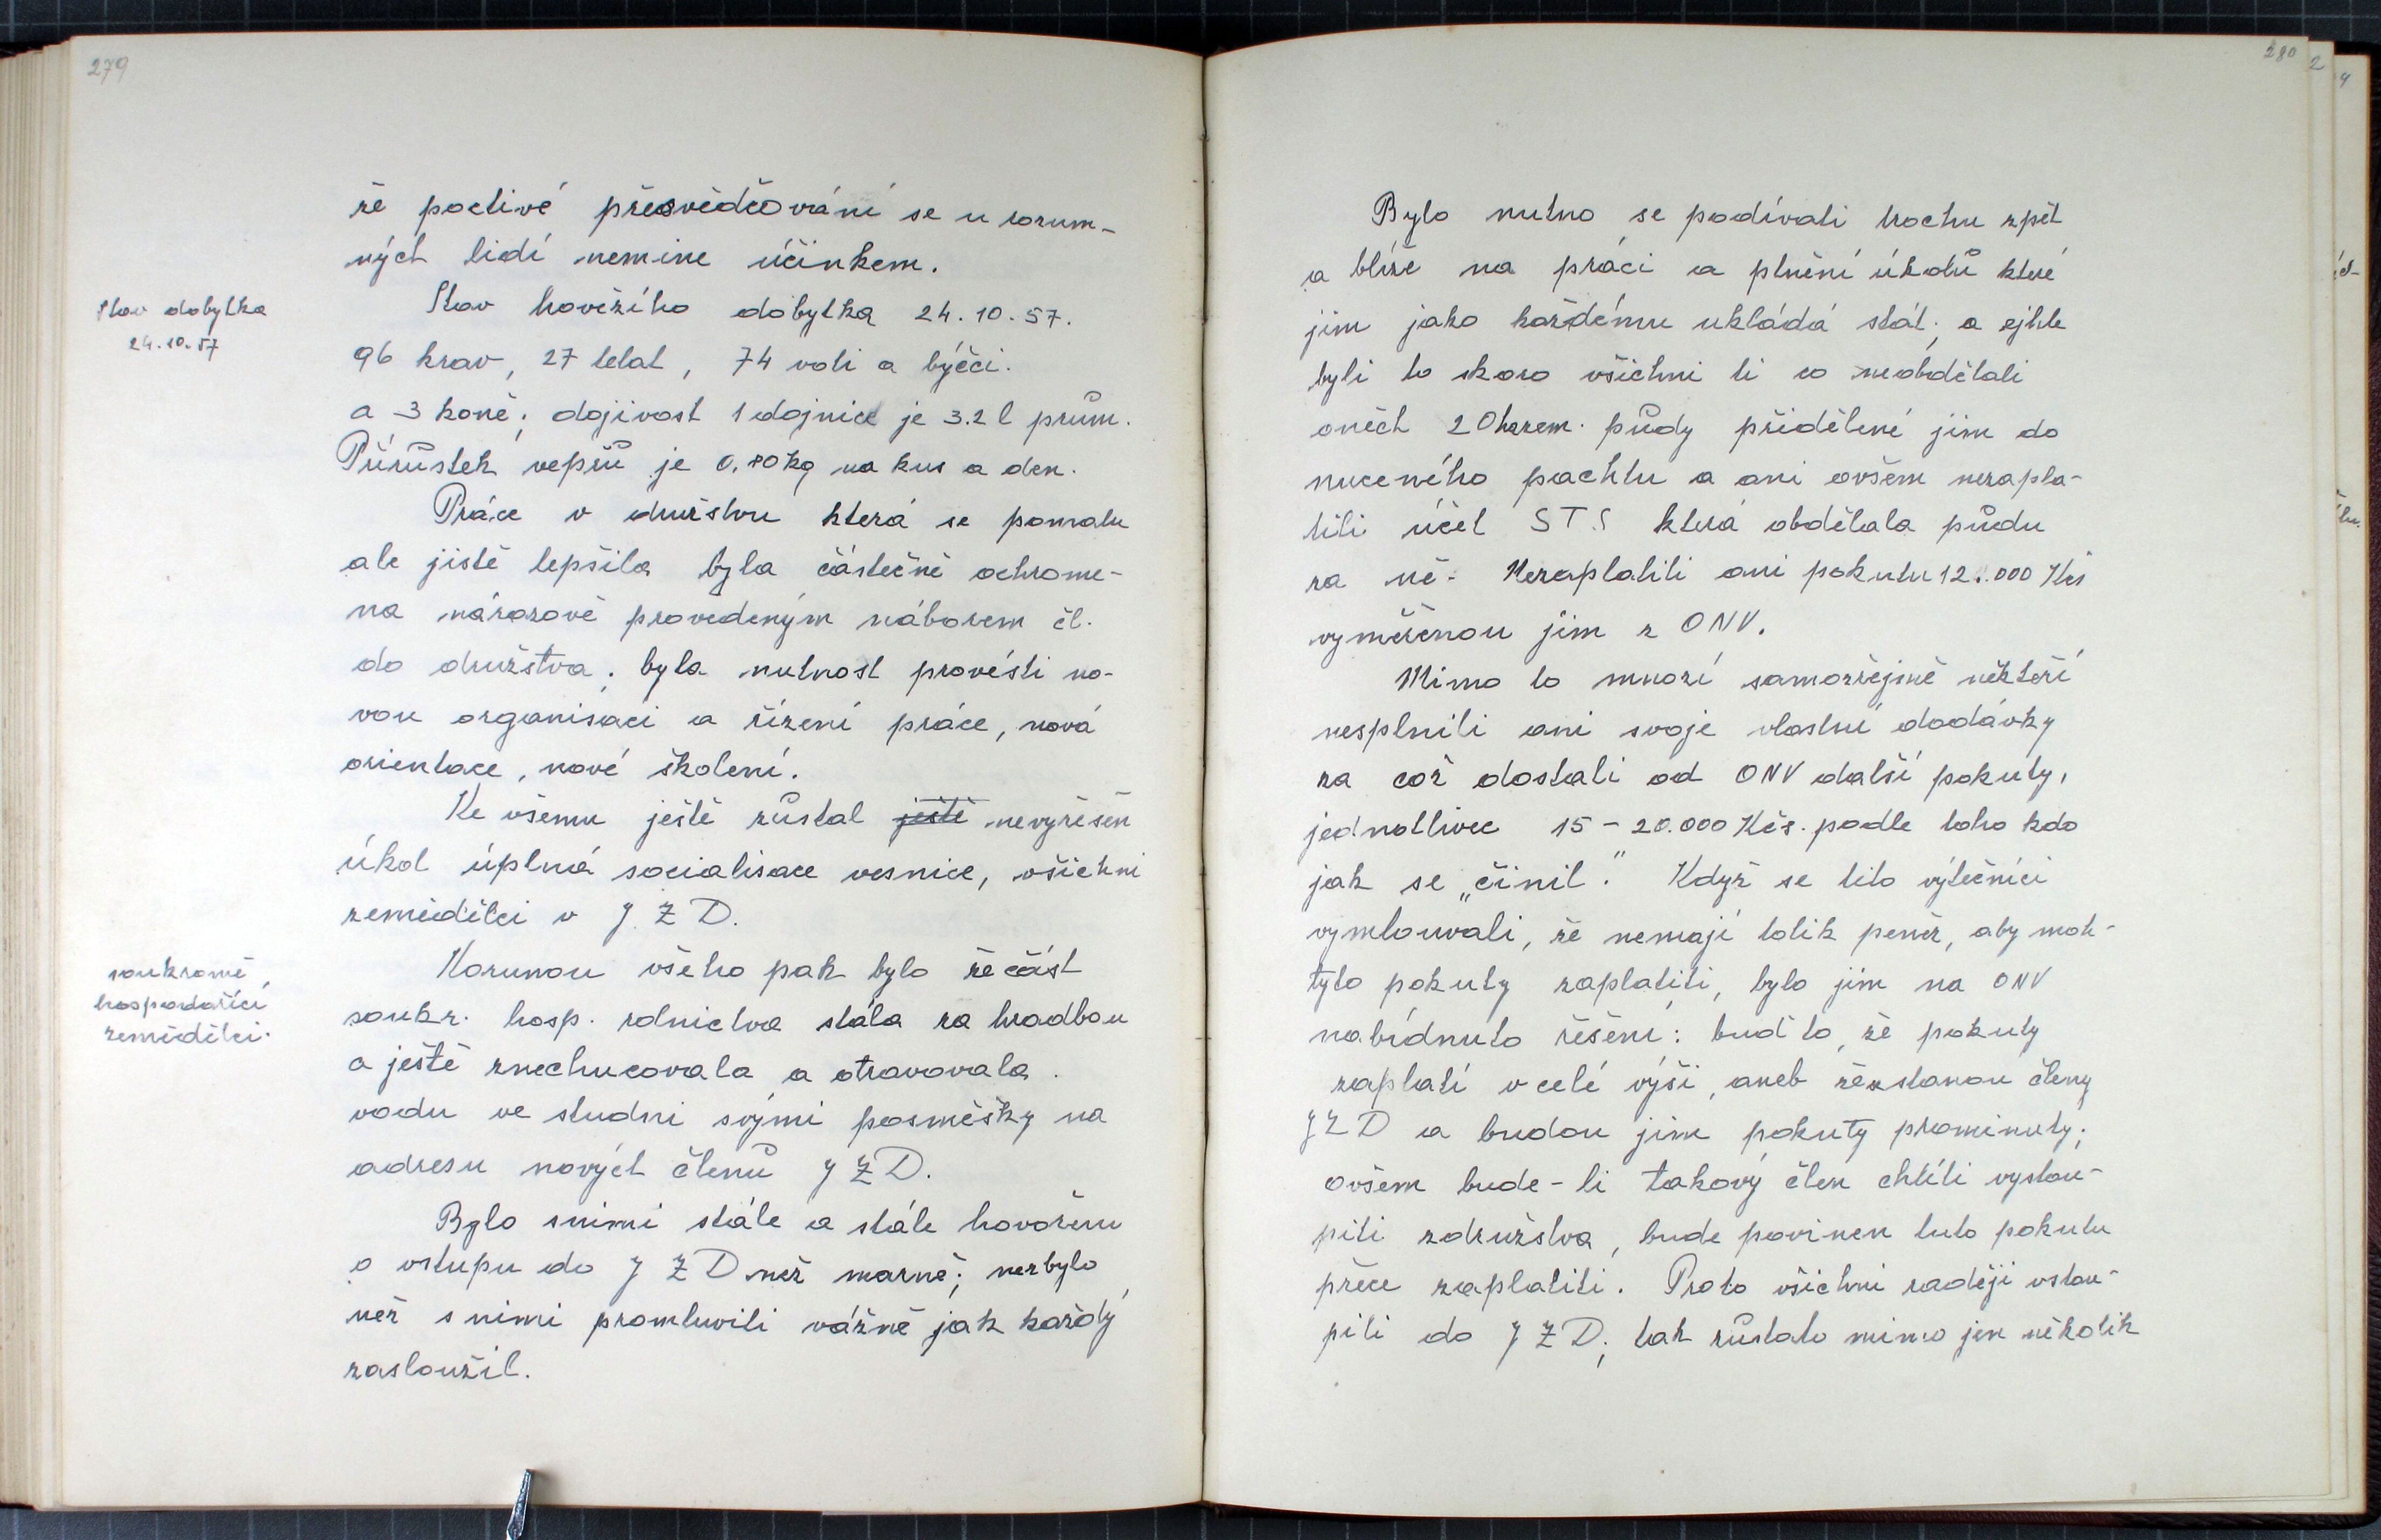 279
že poctivé přesvědčování se u rozum-
ných lidí nemine účinkem.
Stav dobytka
24.10.57
Stav hovězího dobytka 24.10.57.
96 krav, 27 telat, 74 voli a býčci.
a 3 koně; dojivost 1 dojnice je 3.2 l prům.
Přírůstek vepřů je 0.80 kg na kus a den.
Práce v družstvu která se pomalu
ale jistě lepšila byla částečně ochrome-
na nárazově provedeným náborem čl.
do družstva; byla nutnost provésti no-
vou organisaci a řízení práce, nová
orientace, nové školení.
Ke všemu ještě zůstal ještě nevyřešen
úkol úplná socialisace vesnice, všichni
zemědělci v JZD.
soukromě
hospodařící
zemědělci.
Korunou všeho pak bylo že část
soukr. hosp. rolnictva stála za hradbou
a ještě znechucovala a otravovala
vodu ve studni svými posměšky na
adresu nových členů JZD.
Bylo snimi stále a stále hovořeno
o vstupu do JZD než marně; nezbylo
než s nimi promluviti vážně jak každý
zasloužil.
280
Bylo nutno se podívati trochu zpět
a blíže na práci a plnění úkolů které
jim jako každému ukládá stát; a ejhle
byli to skoro všichni ti co neobdělali
oněch 20ha zem. půdy přidělené jim do
nuceného pachtu a ani ovšem nezapla-
tili účet STS která obdělala půdu
za ně. Nezaplatili ani pokutu 12.000 Kčs
vyměřenou jim z ONV.
Mimo to mnozí samozřejmě někteří
nesplnili ani svoje vlastní dodávky
za což dostali od ONV další pokuty,
jednotlivec 15 – 20.000 Kčs. podle toho kdo
jak se „činil." Když se tito výtečníci
vymlouvali, že nemají tolik peněz, aby moh-
tyto pokuty zaplatiti, bylo jim na ONV
nabídnuto řešení: buď to, že pokuty
zaplatí v celé výši, aneb že se stanou členy
JZD a budou jim pokuty prominuty;
ovšem bude-li takový člen chtíti vystou-
piti združstva, bude povinen tuto pokutu
přece zaplatiti. Proto všichni raději vstou-
pili do JZD; tak zůstalo mimo jen několik